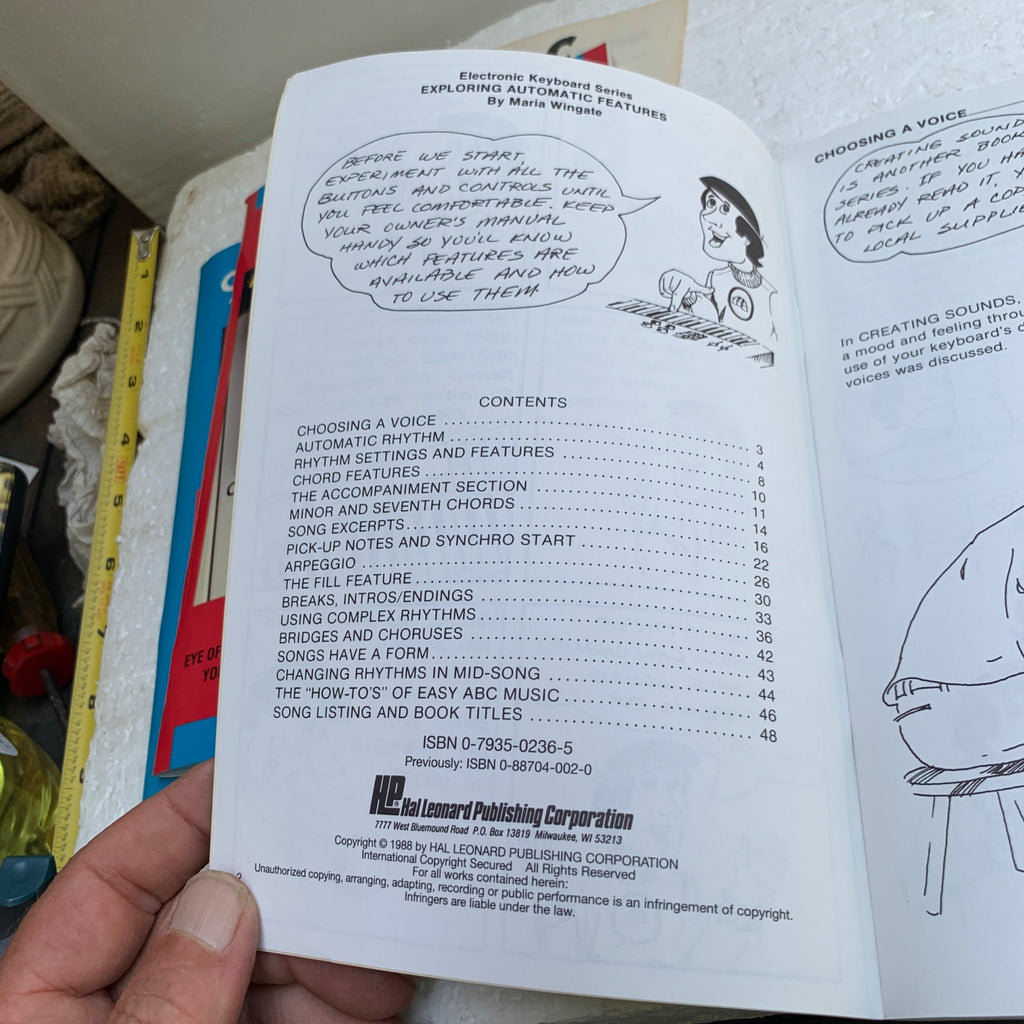 Electronic Keyboard Series
EXPLORING AUTOMATIC FEATURES
By Maria Wingate
BEFORE WE START,
EXPERIMENT WITH ALL THE
BUTTONS AND CONTROLS UNTIL
YOU FEEL COMFORTABLE. KEEP
YOUR OWNER'S MANUAL
HANDY SO YOU'LL KNOW
WHICH FEATURES ARE
AVAILABLE AND HOW
TO USE THEM
CONTENTS
CHOOSING A VOICE 3
AUTOMATIC RHYTHM 4
RHYTHM SETTINGS AND FEATURES 8
CHORD FEATURES 10
THE ACCOMPANIMENT SECTION 11
MINOR AND SEVENTH CHORDS 14
SONG EXCERPTS 16
PICK-UP NOTES AND SYNCHRO START 22
ARPEGGIO 26
THE FILL FEATURE 30
BREAKS, INTROS/ENDINGS 33
USING COMPLEX RHYTHMS 36
BRIDGES AND CHORUSES 42
SONGS HAVE A FORM 43
CHANGING RHYTHMS IN MID-SONG 44
THE "HOW-TO'S" OF EASY ABC MUSIC 46
SONG LISTING AND BOOK TITLES 48
ISBN 0-7935-0236-5
Previously: ISBN 0-88704-002-0
HL® Hal Leonard Publishing Corporation
7777 West Bluemound Road P.O. Box 13819 Milwaukee, WI 53213
Copyright © 1988 by HAL LEONARD PUBLISHING CORPORATION
International Copyright Secured All Rights Reserved
For all works contained herein:
Unauthorized copying, arranging, adapting, recording or public performance is an infringement of copyright.
Infringers are liable under the law.
2
CHOOSING A VOICE
CREATING SOUND
IS ANOTHER BOOK
SERIES. IF YOU HA
ALREADY READ IT, Y
TO PICK UP A COP
LOCAL SUPPLIE
In CREATING SOUNDS,
a mood and feeling throu
use of your keyboard's d
voices was discussed.
EYE OF
YO
C
1
2
3
4
5
6
7
8